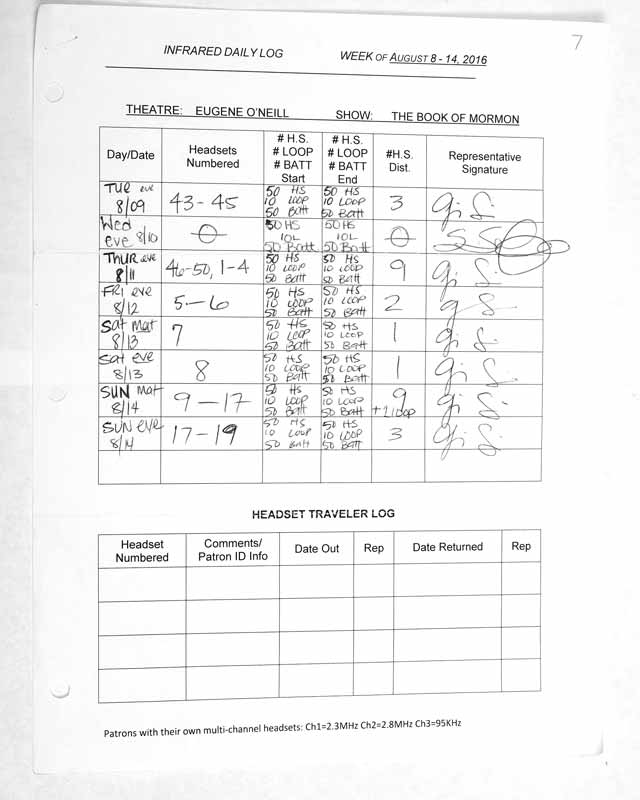 7
INFRARED DAILY LOG WEEK OF AUGUST 8 - 14, 2016
THEATRE: EUGENE O'NEILL SHOW: THE BOOK OF MORMON
Day/Date Headsets Numbered # H.S. # LOOP # BATT Start # H.S. # LOOP # BATT End #H.S. Dist. Representative Signature
TUE eve 8/09 43-45 50 HS 10 LOOP 50 Batt 50 HS 10 LOOP 50 Batt 3
Wed eve 8/10 0 50 HS 10L 50 Batt 50 HS 10L 50 Batt 0
THUR eve 8/11 46-50, 1-4 50 HS 10 LOOP 50 BATT 50 HS 10 LOOP 50 BATT 9
FRI eve 8/12 5-6 50 HS 10 LOOP 50 BATT 50 HS 10 LOOP 50 BATT 2
Sat mat 8/13 7 50 HS 10 LOOP 50 BATT 50 HS 10 LOOP 50 BATT 1
Sat eve 8/13 8 50 HS 10 LOOP 50 BATT 50 HS 10 LOOP 50 BATT 1
SUN mat 8/14 9-17 50 HS 10 LOOP 50 BATT 50 HS 10 LOOP 50 BATT 9 +1 loop
SUN eve 8/14 17-19 50 HS 10 LOOP 50 Batt 50 HS 10 LOOP 50 BATT 3
HEADSET TRAVELER LOG
Headset Numbered Comments/ Patron ID Info Date Out Rep Date Returned Rep
Patrons with their own multi-channel headsets: Ch1=2.3MHz Ch2=2.8MHz Ch3=95KHz